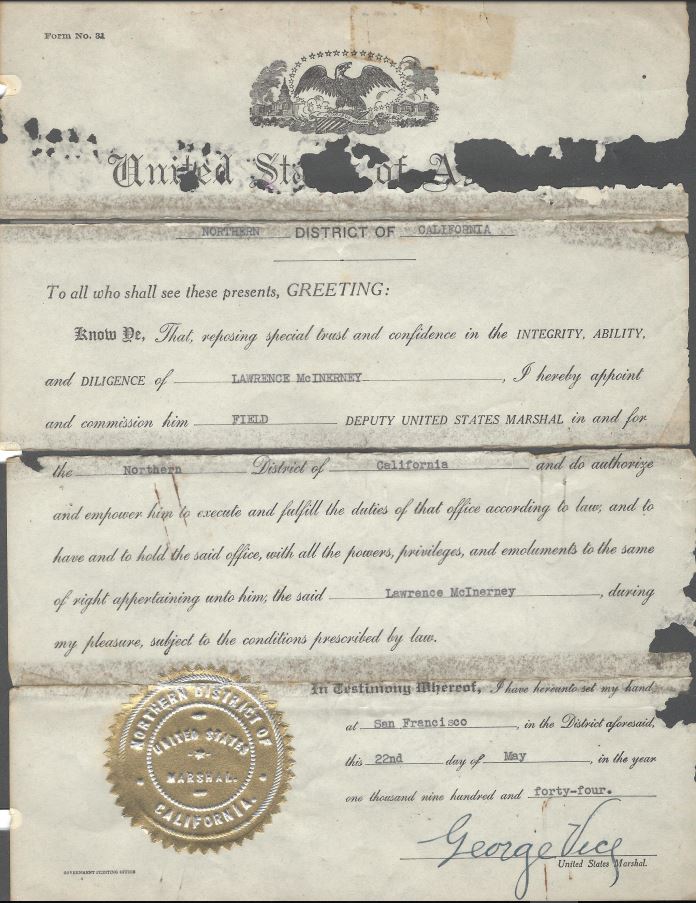 Form No. 31
United of
NORTHERN DISTRICT OF CALIFORNIA
To all who shall see these presents, GREETING:
Know Ye, That, reposing special trust and confidence in the INTEGRITY, ABILITY,
and DILIGENCE of LAWRENCE McINERNEY, I hereby appoint
and commission him FIELD DEPUTY UNITED STATES MARSHAL in and for
the Northern District of California and do authorize
and empower him to execute and fulfill the duties of that office according to law, and to
have and to hold the said office, with all the powers, privileges, and emoluments to the same
of right appertaining unto him, the said Lawrence McInerney, during
my pleasure, subject to the conditions prescribed by law.
In Testimony Whereof, I have hereunto set my hand
at San Francisco, in the District aforesaid,
this 22nd day of May, in the year
one thousand nine hundred and forty-four.
George Vice
United States Marshal.
NORTHERN DISTRICT OF
UNITED STATES
MARSHAL.
CALIFORNIA.
GOVERNMENT PRINTING OFFICE